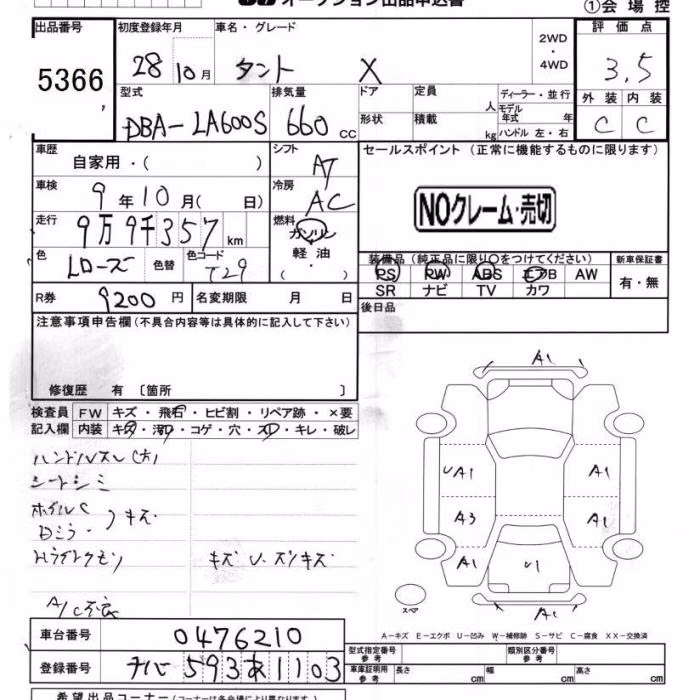 オークション出品申込書 ①会場控
出品番号 初度登録年月 車名・グレード 2WD・4WD 評価点
5366 28 10月 タント X 3.5
型式 排気量 ドア 定員 人 ディーラー・並行 外装 内装
DBA-LA600S 660cc 形状 積載 kg モデル年式 年 ハンドル 左・右 C C
車歴 自家用・( ) シフト AT セールスポイント (正常に機能するものに限ります)
車検 9年10月( 日) 冷房 AC
NOクレーム・売切
走行 9万9千357km 燃料 ガソリン 軽油 ( ・ )
色 Lローズ 色替 色コード T29
装備品 (純正品に限り○をつけてください) 新車保証書
PS PW ABS エアB AW 有・無
R券 9200円 名変期限 月 日 SR ナビ TV カワ
注意事項申告欄(不具合内容等は具体的に記入して下さい) 後日品
修復歴 有 〔箇所 〕
検査員 FW キズ・飛石・ヒビ割・リペア跡・×要
記入欄 内装 キズ・汚・コゲ・穴・スレ・キレ・破レ
ハンドルスレ(大)
シートシミ
ホイルC
Dミラー キズ
Hライトクモリ キズ U・スリキズ
A/C不良
A1
UA1 A1
A3 A1
A1 U1 A1
A1
スペア
A-キズ E-エクボ U-凹み W-補修跡 S-サビ C-腐食 XX-交換済
車台番号 0476210
登録番号 チバ 593 あ 1103
型式指定番号 参考 類別区分番号 参考
車庫証明用 参考 長さ cm 幅 cm 高さ cm
希望出品コーナー